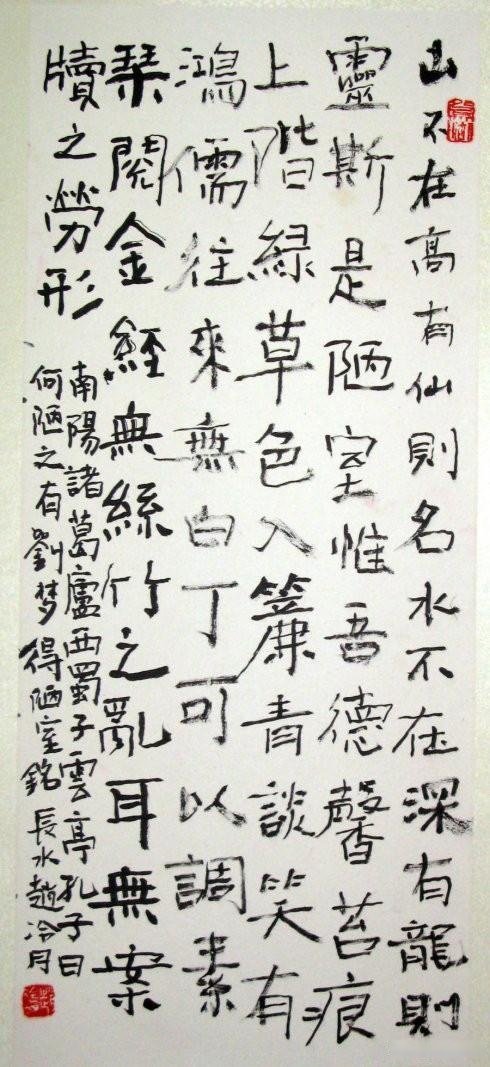 山不在高有仙則名水不在深有龍則
靈斯是陋室惟吾德馨苔痕
上階綠草色入簾青談笑有
鴻儒往來無白丁可以調素
琴閱金經無絲竹之亂耳無案
牘之勞形
南陽諸葛廬西蜀子雲亭孔子曰
何陋之有劉梦得陋室銘長水趙冷月